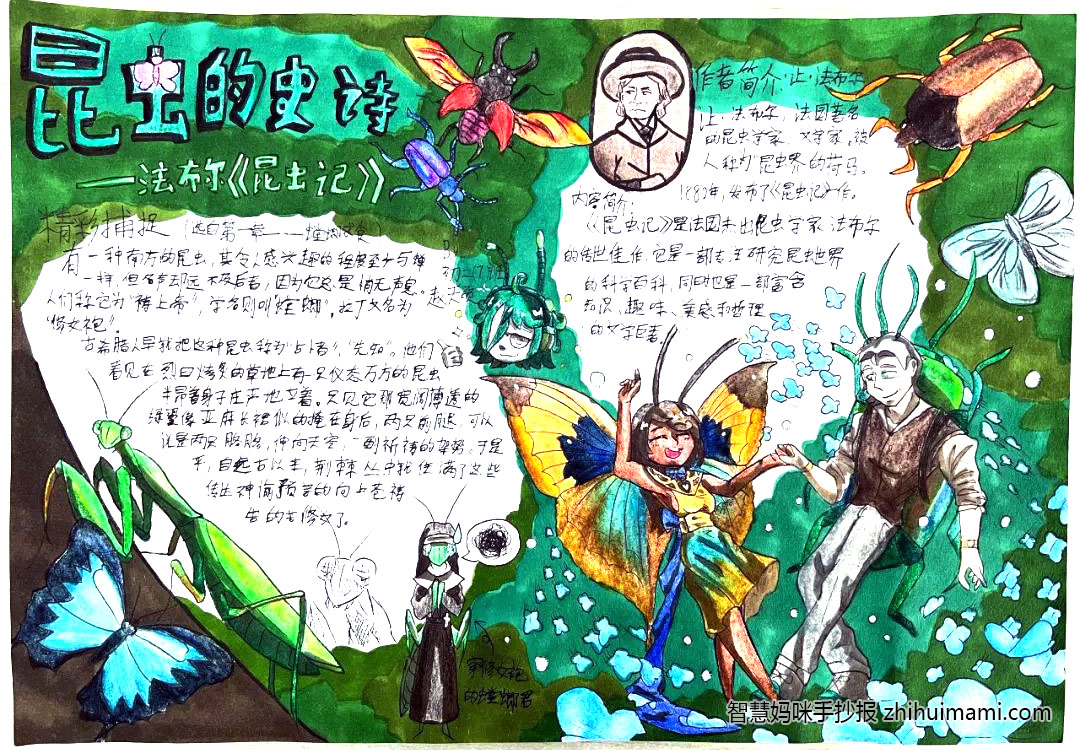 昆虫的史诗
——法布尔《昆虫记》
精彩捕捉(选自第一章
有一种南方的昆虫,其令人感兴趣的程度至少与蝉
一样,但名声却远不及后者,因为它总是悄无声息。
人们称它为“祷上帝”,学名则叫“螳螂”。拉丁文名为
“修女袍”。
古希腊人早就把这种昆虫称为“占卜者”,“先知”。他们
看见在烈日烧灼的草地上有一只仪态万方的昆虫
半昂着身子庄严地立着。只见它那宽阔薄透的
绿翼像亚麻长裙似的掩在身后,两只前腿,可以
说是两只胳膊,伸向天空,一副祈祷的架势。于是
乎,自远古以来,荆棘丛中就住满了这些
传达神谕预言的向上苍祷
告的苦修女了。
穿修女袍
的螳螂君
作者简介:让·法布尔
让·法布尔,法国著名
的昆虫学家、文学家,被
人称为“昆虫界的荷马。
内容简介:
《昆虫记》是法国杰出昆虫学家法布尔
的传世佳作,它是一部专注研究昆虫世界
的科学百科,同时也是一部富含
知识、趣味、美感和哲理
的文学巨著。
智慧妈咪手抄报 zhihuimami.com